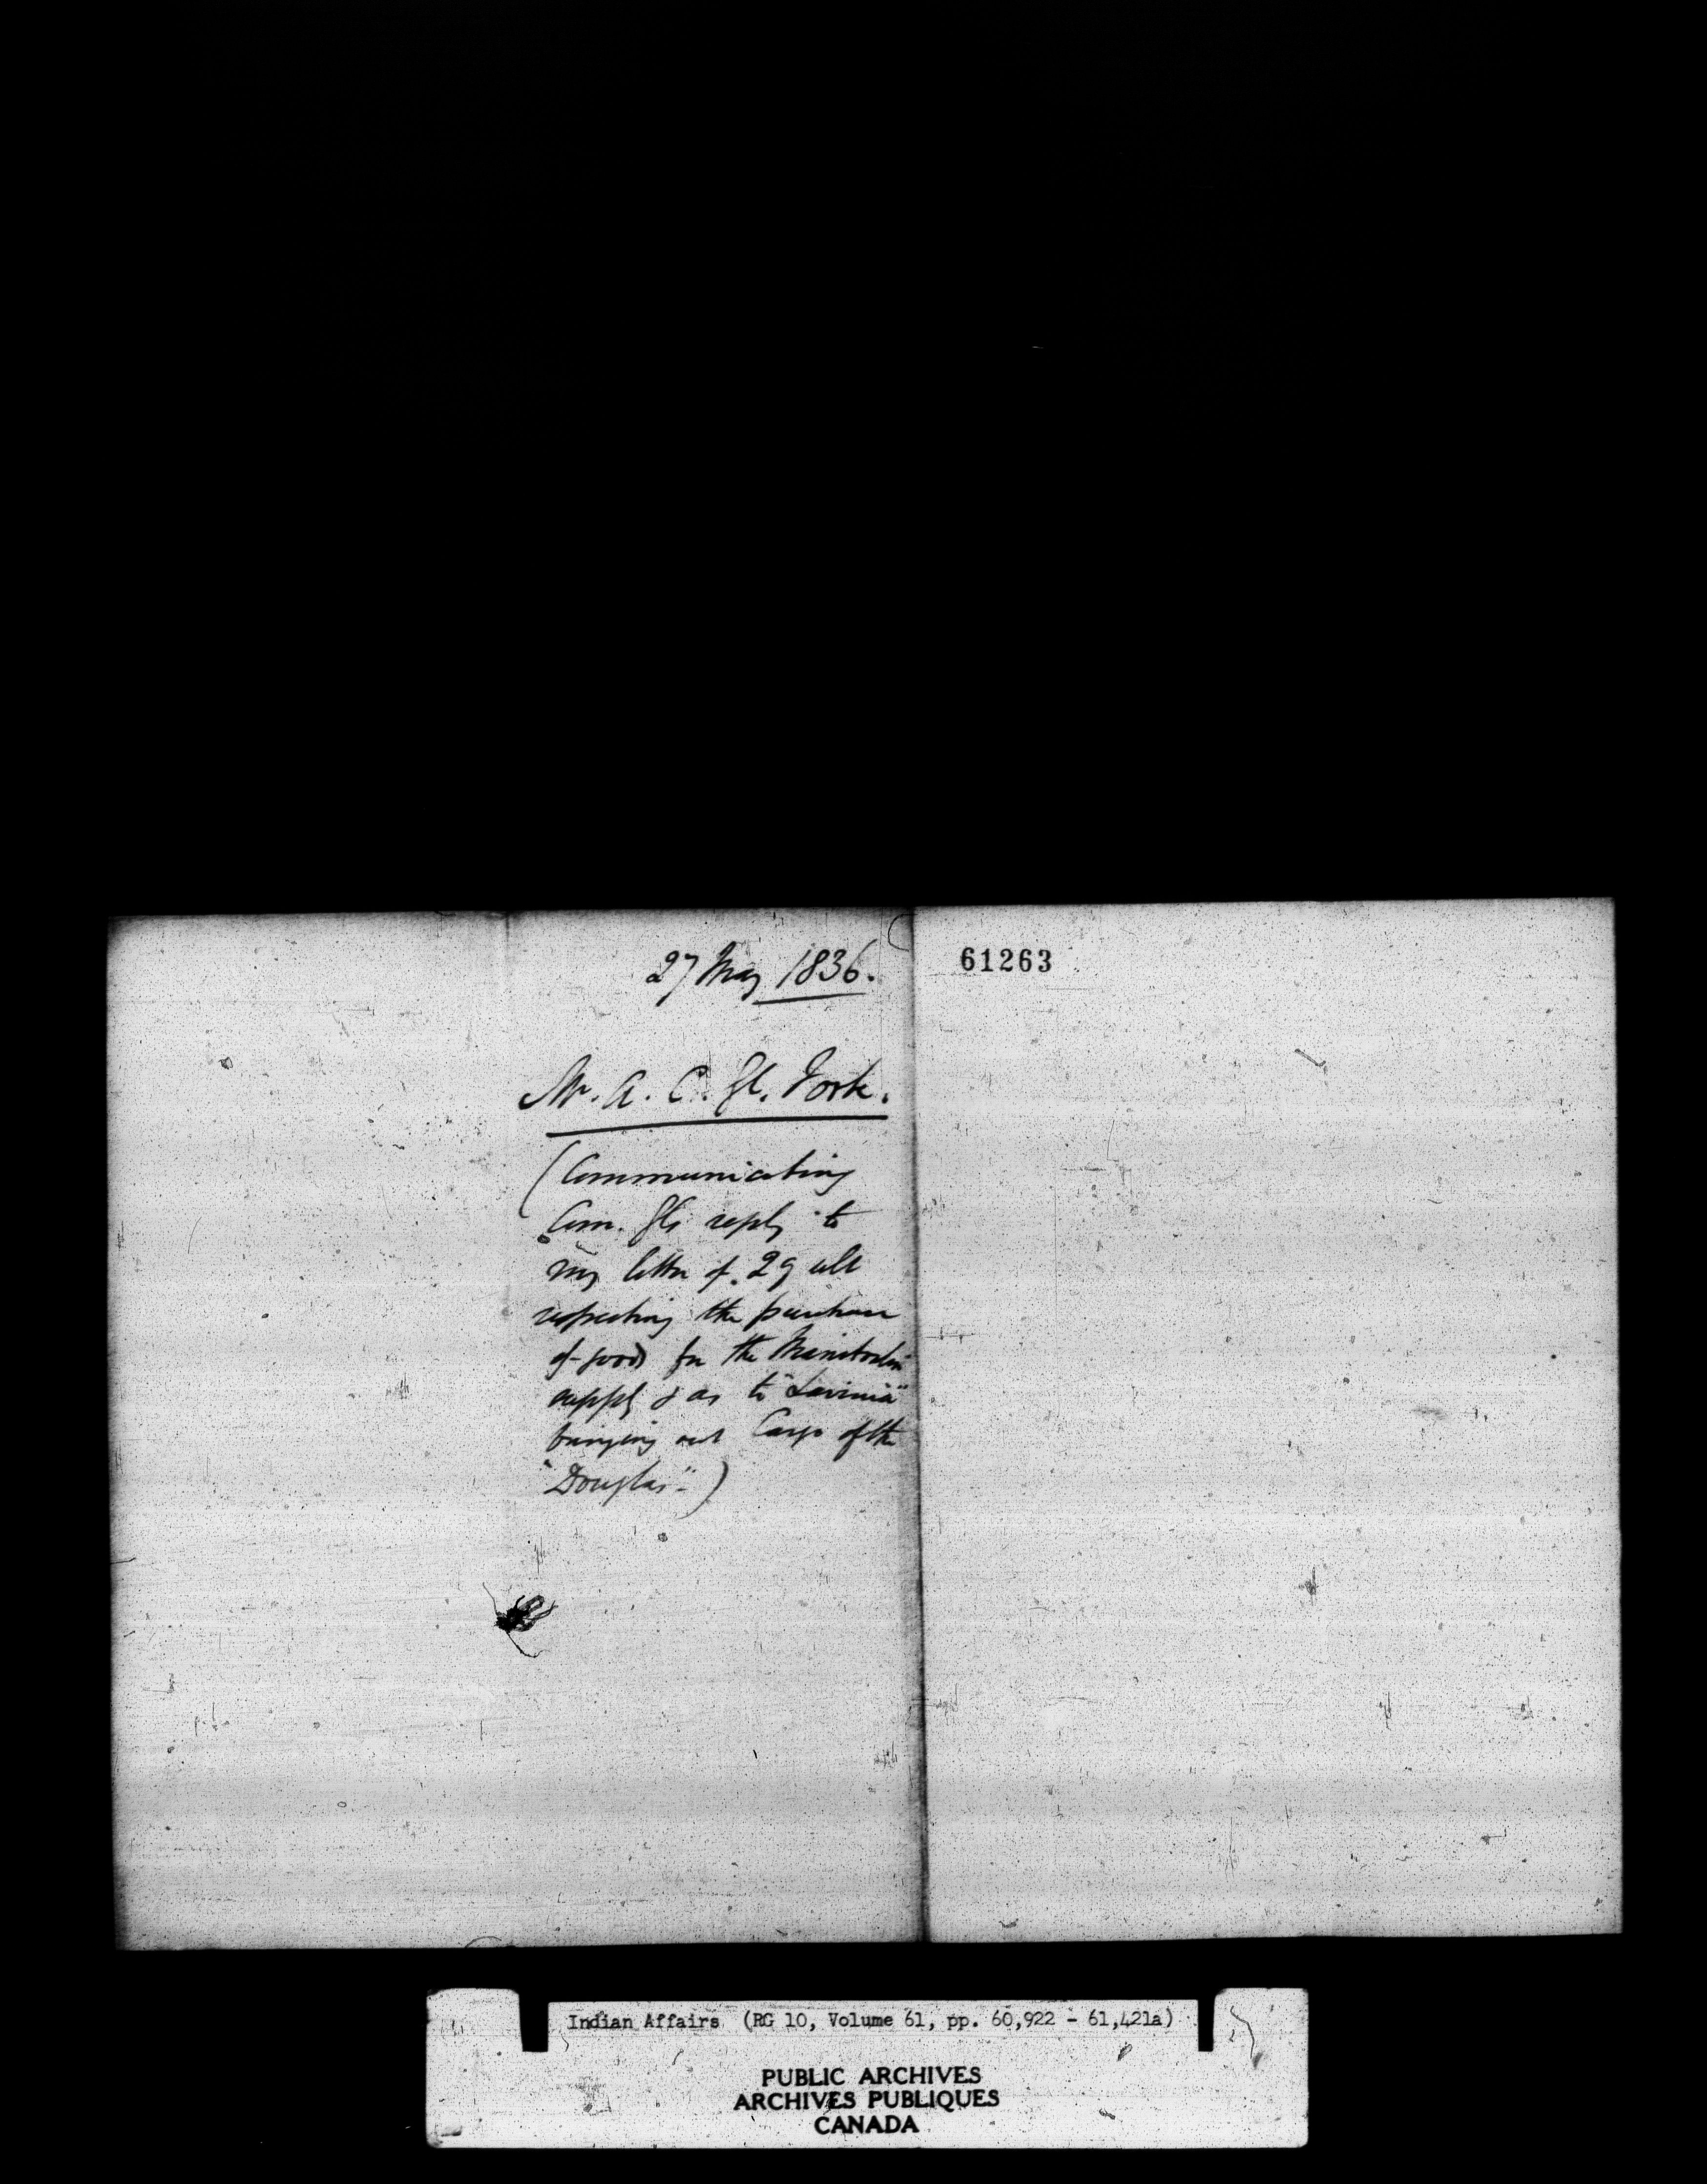 27 May 1836.
61263
Mr. A. C. Gl. York.
(Communicating
Com. Gls reply to
my letter of 29 ult
respecting the purchase
of goods for the Manitoulin
supply & as to "Lavinia"
bringing out Cargo of the
"Douglas".)
Indian Affairs (RG 10, Volume 61, pp. 60,922 - 61,421a)
PUBLIC ARCHIVES
ARCHIVES PUBLIQUES
CANADA